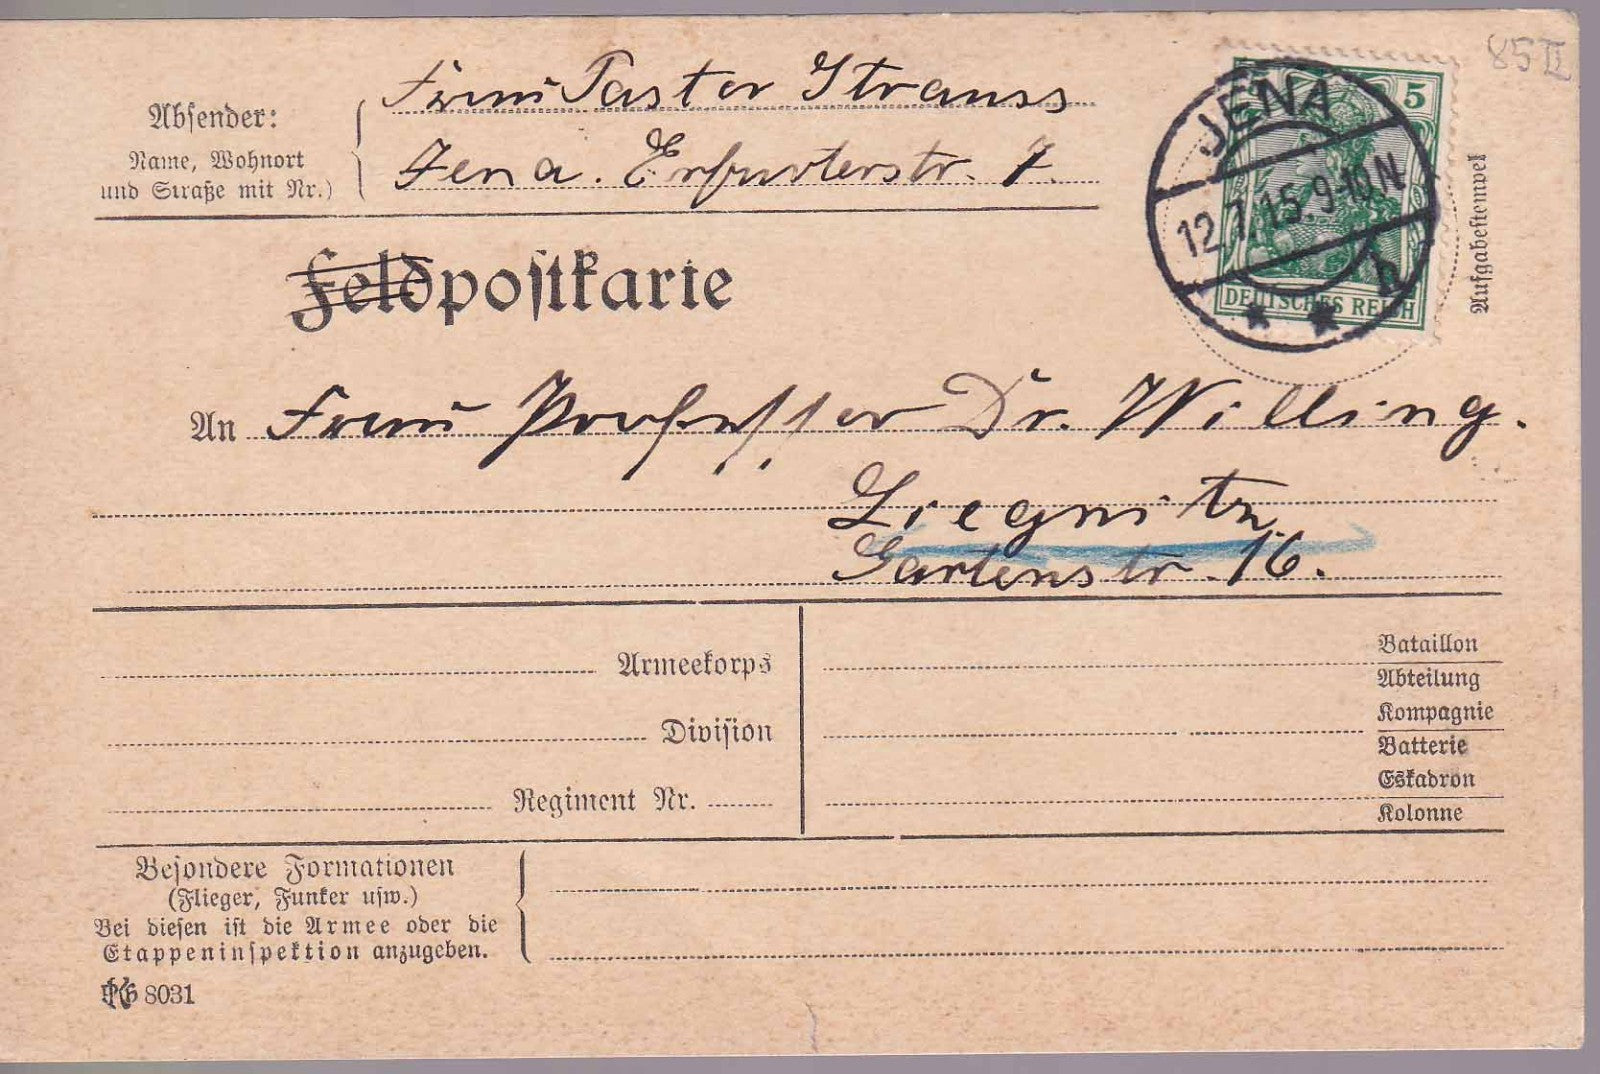 85 II
Absender:
Name, Wohnort
und Straße mit Nr.)
Frau Pastor Strauss
Jena. Erfurterstr. 7.
JENA
12.7.15.9-10.N
h
* *
5
DEUTSCHES REICH
Aufgabestempel
Feldpostkarte
An Frau Professor Dr. Willing.
Liegnitz
Gartenstr. 16.
Armeekorps
Division
Regiment Nr.
Bataillon
Abteilung
Kompagnie
Batterie
Eskadron
Kolonne
Besondere Formationen
(Flieger, Funker usw.)
Bei diesen ist die Armee oder die
Etappeninspektion anzugeben.
8031